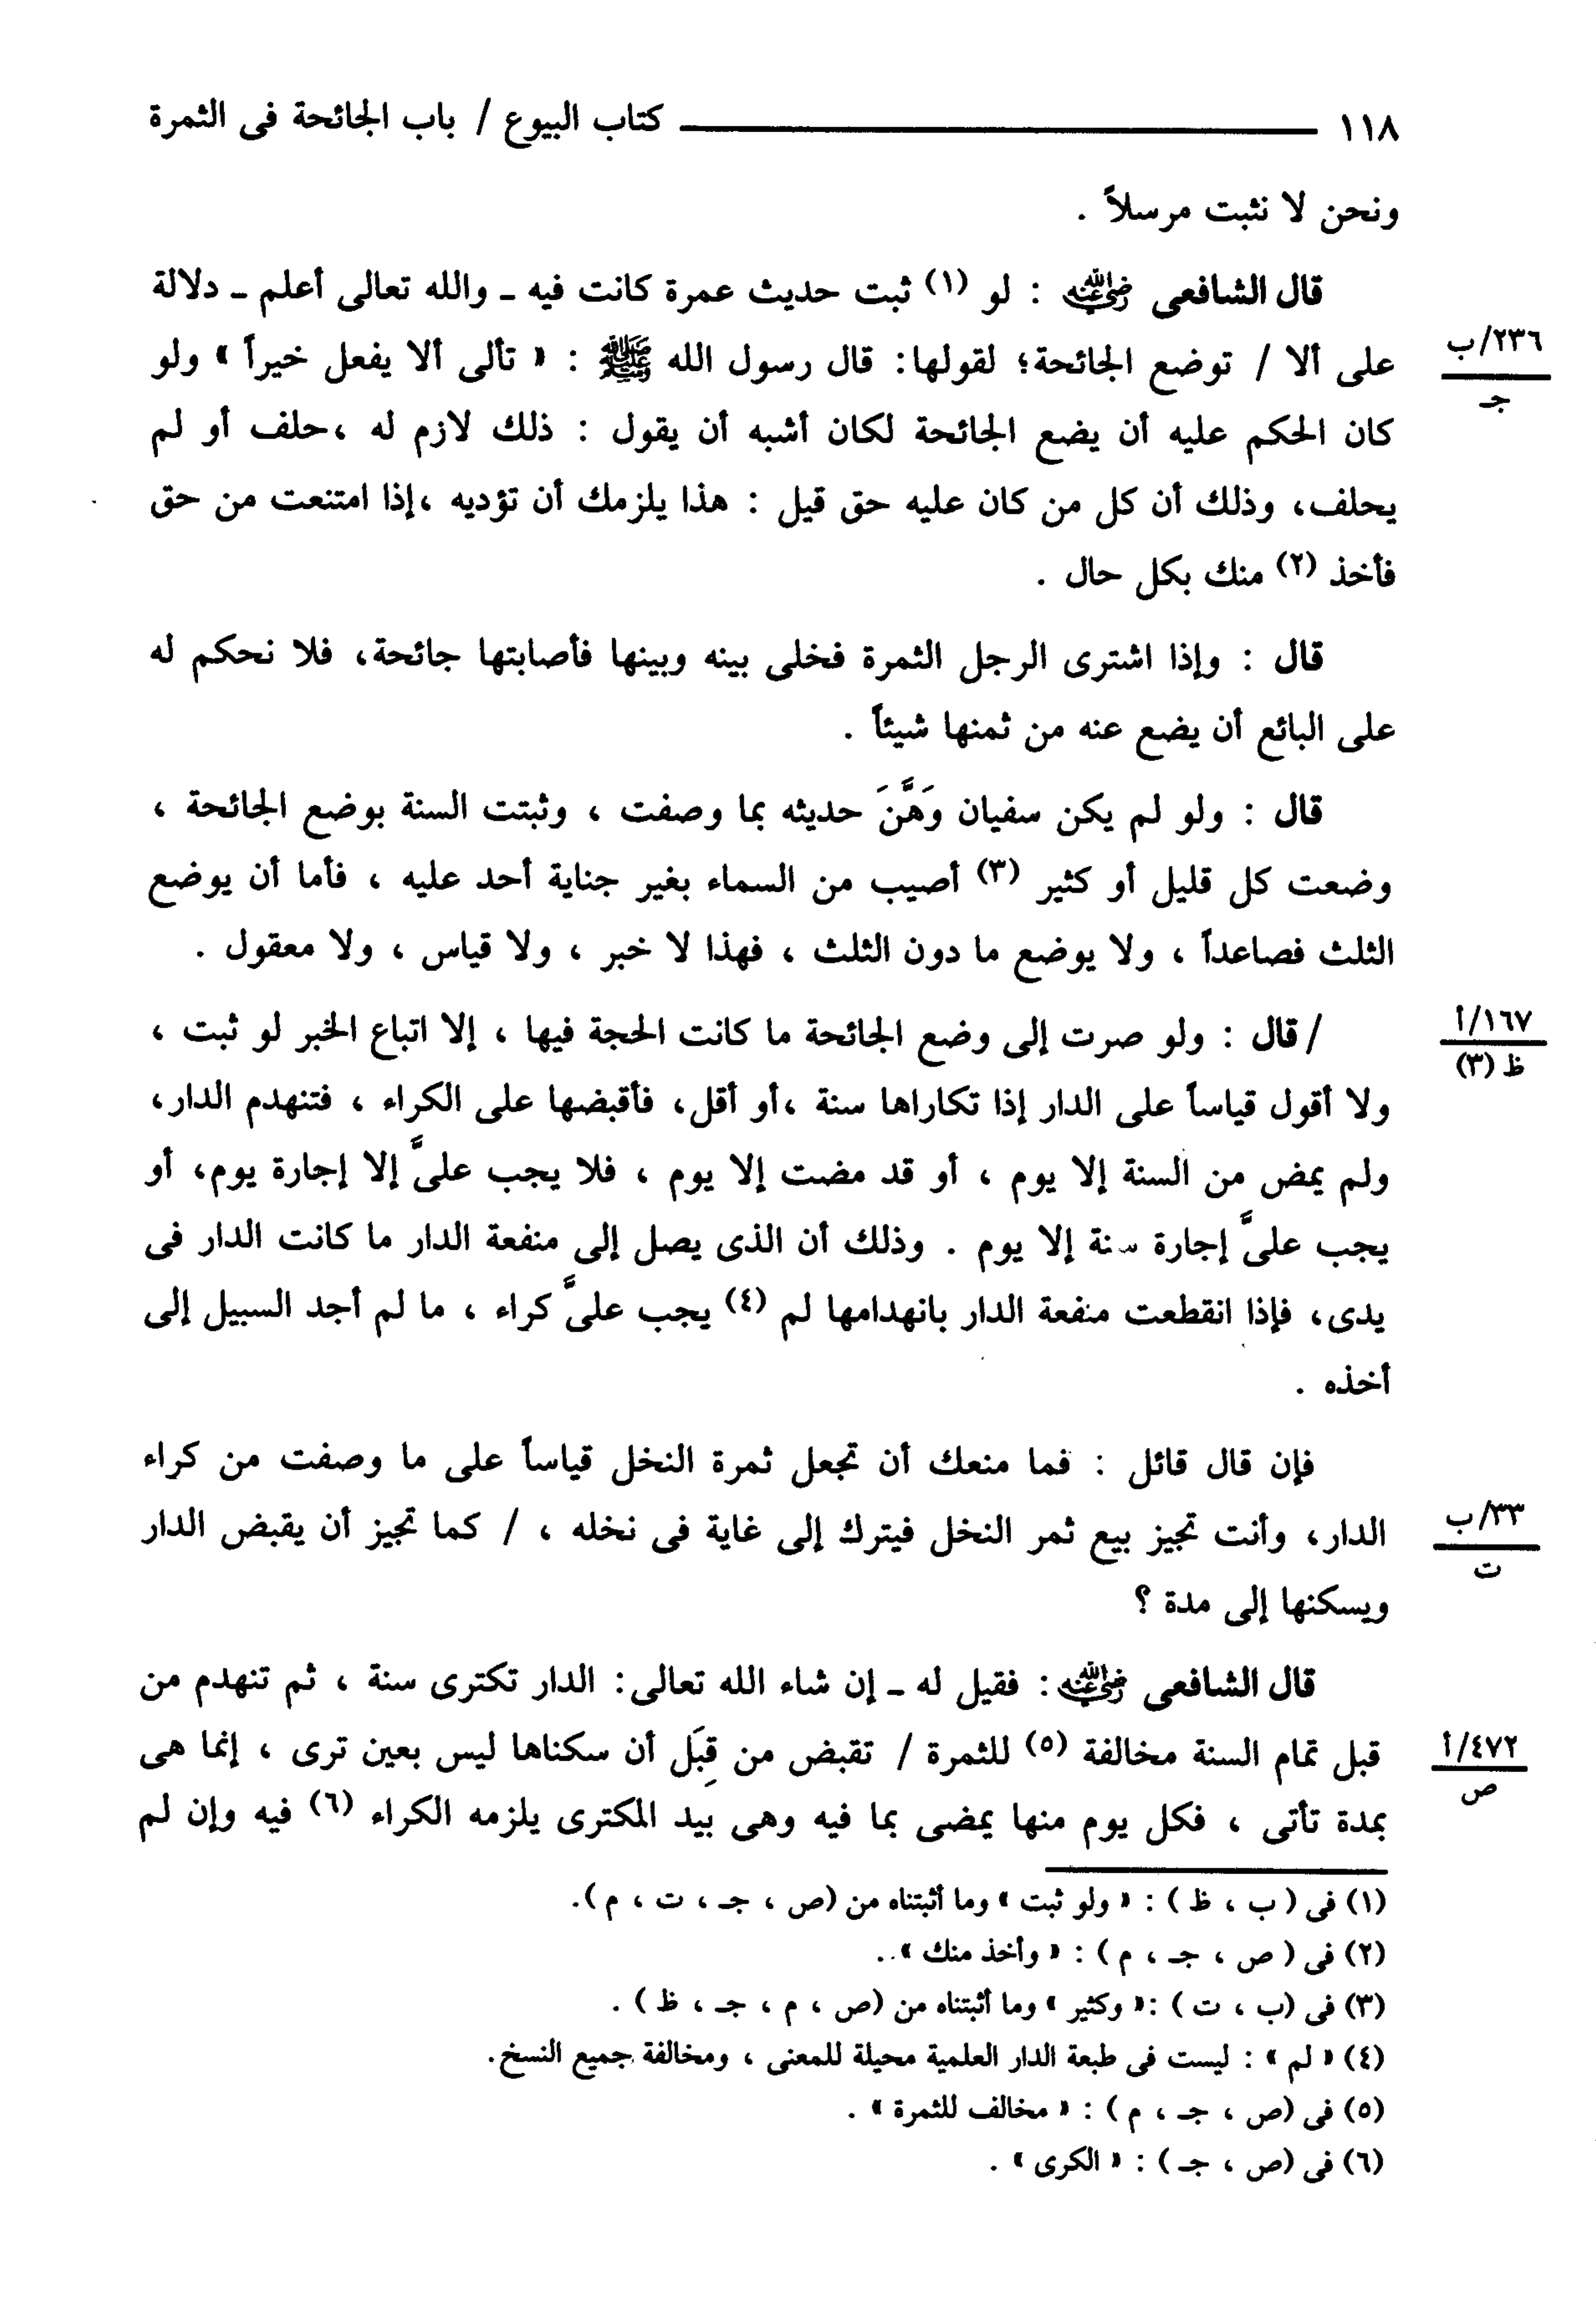 ١١٨ كتاب البيوع / باب الجائحة فى الثمرة
ونحن لا نثبت مرسلاً .
قال الشافعى رضي الله عنه : لو (١) ثبت حديث عمرة كانت فيه ـ والله تعالى أعلم ـ دلالة
على ألا / توضع الجائحة؛ لقولها: قال رسول الله ﷺ : « تألى ألا يفعل خيراً » ولو
٢٣٦/ب
جـ
كان الحكم عليه أن يضع الجائحة لكان أشبه أن يقول : ذلك لازم له ،حلف أو لم
يحلف، وذلك أن كل من كان عليه حق قيل : هذا يلزمك أن تؤديه ،إذا امتنعت من حق
فأخذ (٢) منك بكل حال .
قال : وإذا اشترى الرجل الثمرة فخلى بينه وبينها فأصابتها جائحة، فلا نحكم له
على البائع أن يضع عنه من ثمنها شيئاً .
قال : ولو لم يكن سفيان وَهَّنَ حديثه بما وصفت ، وثبتت السنة بوضع الجائحة ،
وضعت كل قليل أو كثير (٣) أصيب من السماء بغير جناية أحد عليه ، فأما أن يوضع
الثلث فصاعداً ، ولا يوضع ما دون الثلث ، فهذا لا خبر ، ولا قياس ، ولا معقول .
/ قال : ولو صرت إلى وضع الجائحة ما كانت الحجة فيها ، إلا اتباع الخبر لو ثبت ،
١٦٧/أ
ظ (٣)
ولا أقول قياساً على الدار إذا تكاراها سنة ،أو أقل، فأقبضها على الكراء ، فتنهدم الدار،
ولم يمض من السنة إلا يوم ، أو قد مضت إلا يوم ، فلا يجب علىَّ إلا إجارة يوم، أو
يجب علىَّ إجارة سنة إلا يوم . وذلك أن الذى يصل إلى منفعة الدار ما كانت الدار فى
يدى، فإذا انقطعت منفعة الدار بانهدامها لم (٤) يجب علىَّ كراء ، ما لم أجد السبيل إلى
أخذه .
فإن قال قائل : فما منعك أن تجعل ثمرة النخل قياساً على ما وصفت من كراء
الدار، وأنت تجيز بيع ثمر النخل فيترك إلى غاية فى نخله ، / كما تجيز أن يقبض الدار
٣٣/ب
ت
ويسكنها إلى مدة ؟
قال الشافعى رضي الله عنه : فقيل له ـ إن شاء الله تعالى: الدار تكترى سنة ، ثم تنهدم من
قبل تمام السنة مخالفة (٥) للثمرة / تقبض من قِبَل أن سكناها ليس بعين ترى ، إنما هى
٤٧٢/أ
ص
بمدة تأتى ، فكل يوم منها يمضى بما فيه وهى بيد المكترى يلزمه الكراء (٦) فيه وإن لم
(١) فى ( ب ، ظ ) : « ولو ثبت » وما أثبتناه من (ص ، جـ ، ت ، م ).
(٢) فى ( ص ، جـ ، م ) : « وأخذ منك ».
(٣) فى (ب ، ت ) :« وكثير » وما أثبتناه من (ص ، م ، جـ ، ظ ) .
(٤) « لم » : ليست فى طبعة الدار العلمية محيلة للمعنى ، ومخالفة جميع النسخ.
(٥) فى (ص ، جـ ، م ) : « مخالف للثمرة » .
(٦) فى (ص ، جـ ) : « الكرى » .